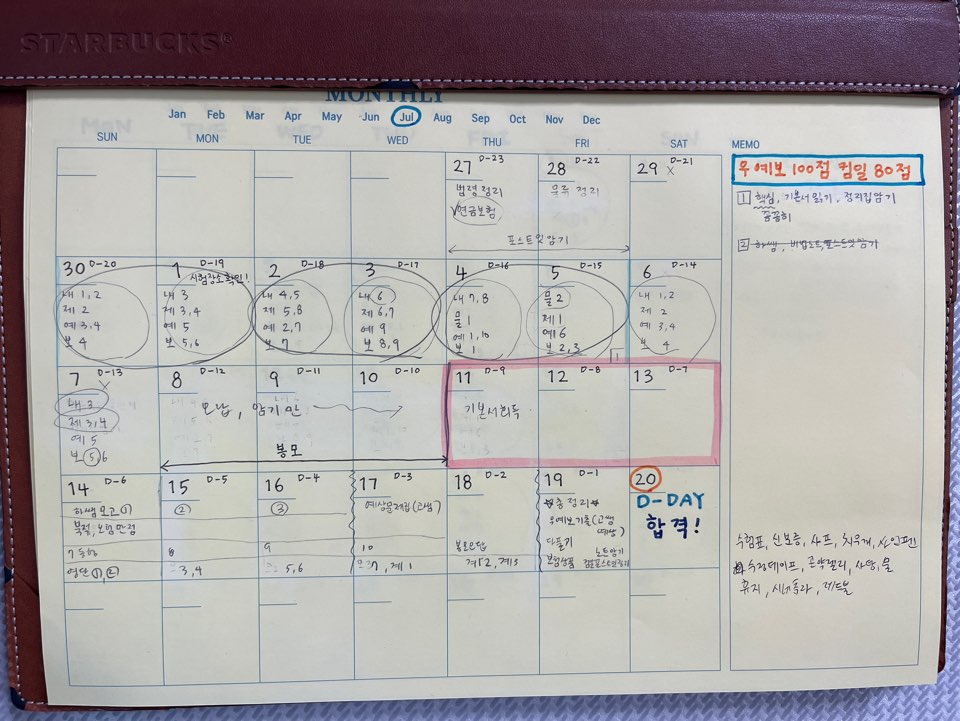 STARBUCKS®
MONTHLY
Jan Feb Mar Apr May Jun Jul Aug Sep Oct Nov Dec
SUN MON TUE WED THU FRI SAT
MEMO
27 D-23
법령정리
√연금보험
28 D-22
정리
29 D-21
X
포스트잇암기
우예보 100점 컴일 80점
1 핵심, 기본서읽기, 정리집암기
꼼꼼히
2
30 D-20
내 1,2
제 2
예 3,4
보 4
1 D-19
시험장소확인!
내 3
제 3,4
예 5
보 5,6
2 D-18
내 4,5
제 5,8
예 2,7
보 7
3 D-17
내 6
제 6,7
예 9
보 8,9
4 D-16
내 7,8
물 1
예 1,10
보 1
5 D-15
물 2
제 1
예 6
보 2,3
1
6 D-14
내 1,2
제 2
예 3,4
보 4
7 D-13
X
내 3
제 3,4
예 5
보 5 6
8 D-12
9 D-11
10 D-10
오답, 암기만
봉모
11 D-9
기본서회독
12 D-8
13 D-7
14 D-6
하쌤모고 ①
영단 ① ②
15 D-5
②
8
3,4
16 D-4
③
9
5,6
17 D-3
예상문제집(고쌤)
10
7, 계1
18 D-2
봉모오답
계2, 계3
19 D-1
★총정리★
우예보기출(고쌤
예상)
다풀기
노트암기
보험상품
20
D-DAY
합격!
수험표, 신분증, 샤프, 지우개, 사인펜
수정테이프, 곤약젤리, 사탕, 물
휴지, 시계, 레드불